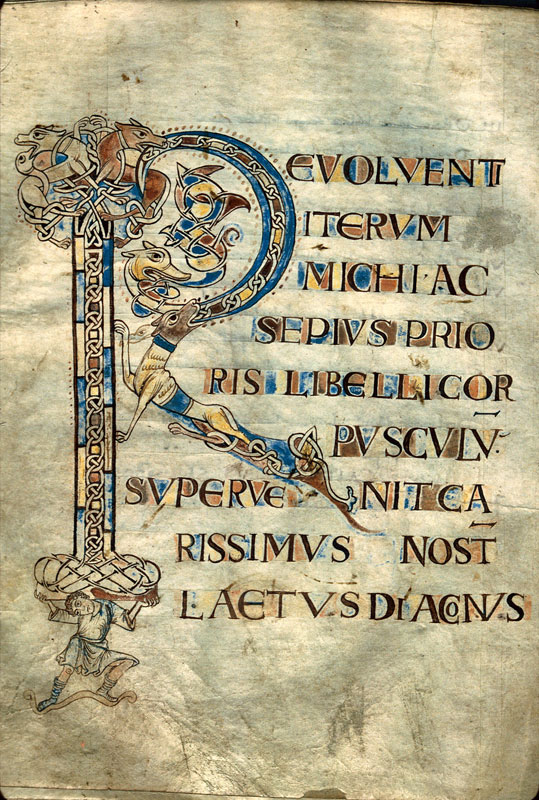 REVOLVENTI
ITERVM
MICHI·AC
SEPIVS PRIO
RIS LIBELLI COR
PVSCVLV̄·
SVPERVE NIT CA
RISSIMVS NOST̄
LAETVS DIACONVS